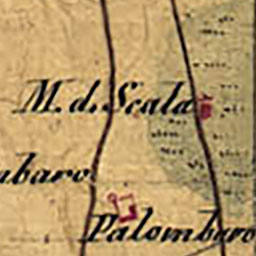 M. d. Scala
mbaro
Palombaro